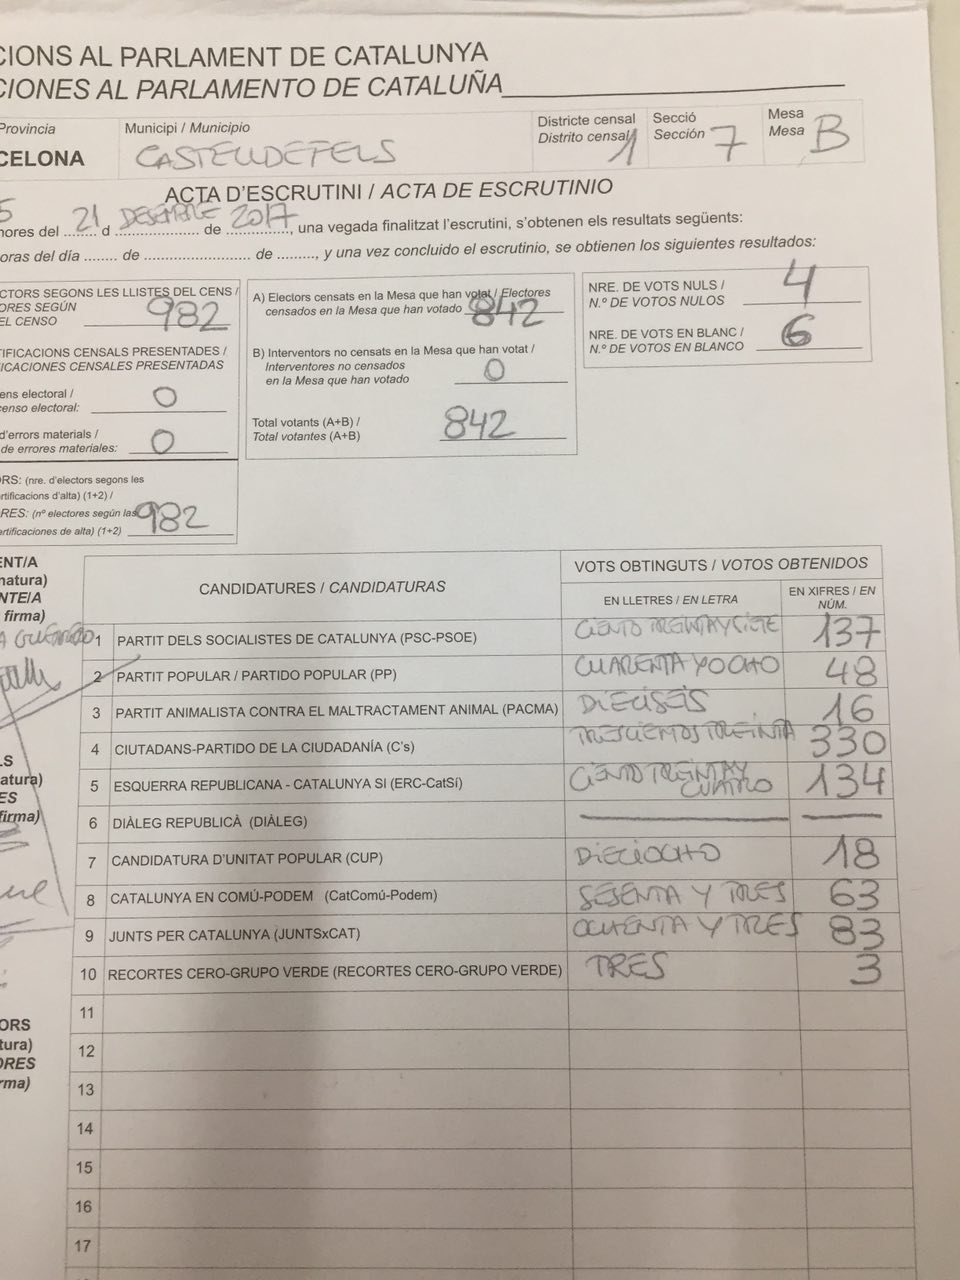 CIONS AL PARLAMENT DE CATALUNYA
CIONES AL PARLAMENTO DE CATALUÑA
Provincia
CELONA
Municipi / Municipio
CASTELLDEFELS
Districte censal
Distrito censal 1
Secció
Sección 7
Mesa
Mesa B
ACTA D'ESCRUTINI / ACTA DE ESCRUTINIO
5
hores del 21 d DESEMBRE de 2017, una vegada finalitzat l'escrutini, s'obtenen els resultats següents:
oras del día ........ de ........................ de ........., y una vez concluido el escrutinio, se obtienen los siguientes resultados:
CTORS SEGONS LES LLISTES DEL CENS /
ORES SEGÚN
EL CENSO 982
TIFICACIONS CENSALS PRESENTADES /
ICACIONES CENSALES PRESENTADAS
ens electoral /
enso electoral: 0
d'errors materials /
de errores materiales: 0
ORS: (nre. d'electors segons les
rtificacions d'alta) (1+2) /
RES: (nº electores según las
ertificaciones de alta) (1+2) 982
A) Electors censats en la Mesa que han votat / Electores
censados en la Mesa que han votado 842
B) Interventors no censats en la Mesa que han votat /
Interventores no censados
en la Mesa que han votado 0
Total votants (A+B) /
Total votantes (A+B) 842
NRE. DE VOTS NULS /
N.º DE VOTOS NULOS 4
NRE. DE VOTS EN BLANC /
N.º DE VOTOS EN BLANCO 6
ENT/A
natura)
NTE/A
firma)
LS
natura)
ES
firma)
ORS
tura)
ORES
rma)
CANDIDATURES / CANDIDATURAS
VOTS OBTINGUTS / VOTOS OBTENIDOS
EN LLETRES / EN LETRA
EN XIFRES / EN
NÚM.
1 PARTIT DELS SOCIALISTES DE CATALUNYA (PSC-PSOE) CIENTO TREINTA Y SIETE 137
2 PARTIT POPULAR / PARTIDO POPULAR (PP) CUARENTA Y OCHO 48
3 PARTIT ANIMALISTA CONTRA EL MALTRACTAMENT ANIMAL (PACMA) DIECISEIS 16
4 CIUTADANS-PARTIDO DE LA CIUDADANÍA (C's) TRESCIENTOS TREINTA 330
5 ESQUERRA REPUBLICANA - CATALUNYA SI (ERC-CatSí) CIENTO TREINTA Y CUATRO 134
6 DIÀLEG REPUBLICÀ (DIÀLEG)
7 CANDIDATURA D'UNITAT POPULAR (CUP) DIECIOCHO 18
8 CATALUNYA EN COMÚ-PODEM (CatComú-Podem) SESENTA Y TRES 63
9 JUNTS PER CATALUNYA (JUNTSxCAT) OCHENTA Y TRES 83
10 RECORTES CERO-GRUPO VERDE (RECORTES CERO-GRUPO VERDE) TRES 3
11
12
13
14
15
16
17